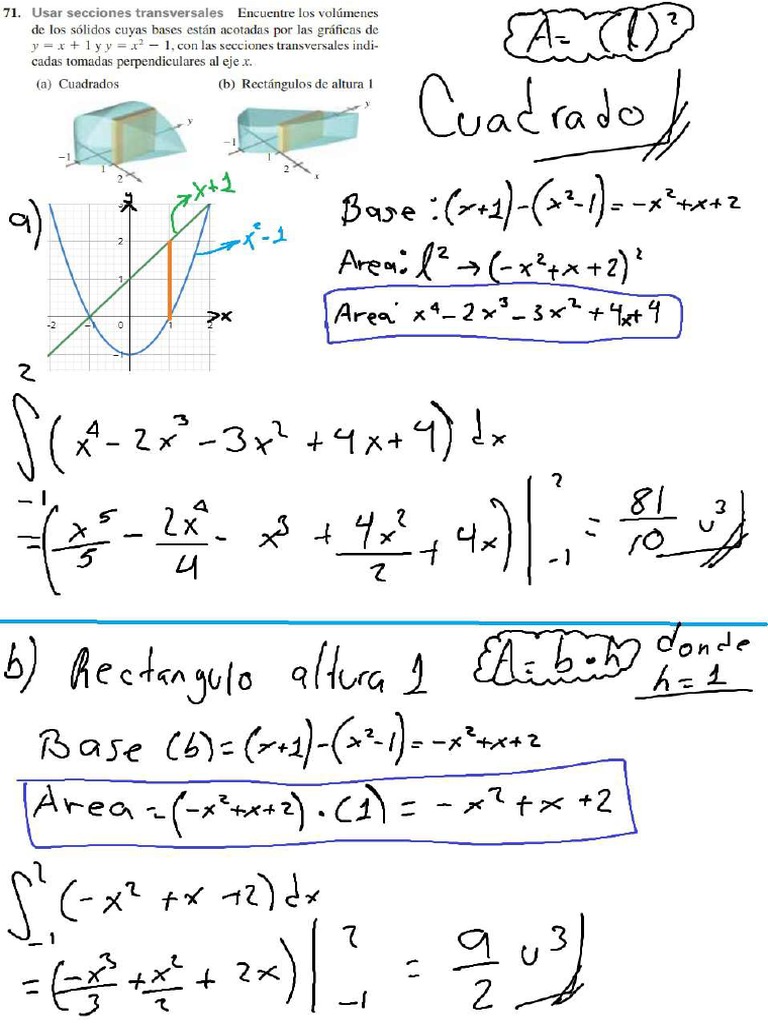 71. Usar secciones transversales Encuentre los volúmenes
de los sólidos cuyas bases están acotadas por las gráficas de
y = x + 1 y y = x² − 1, con las secciones transversales indi-
cadas tomadas perpendiculares al eje x.
(a) Cuadrados (b) Rectángulos de altura 1
y
−1
1
2
y
−1
1
2
x
A = (l)²
Cuadrado
a)
y
x+1
x²-1
x
2
1
-2 -1 0 1 2
-1
Base: (x+1)-(x²-1) = -x²+x+2
Area: l² → (-x²+x+2)²
Area: x⁴-2x³-3x²+4x+4
2
∫(x⁴-2x³-3x²+4x+4) dx
-1
=(x⁵/5 - 2x⁴/4 - x³ + 4x²/2 + 4x)|²₋₁ = 81/10 u³
b) Rectangulo altura 1 A=b·h donde
h=1
Base (b)=(x+1)-(x²-1)=-x²+x+2
Area=(-x²+x+2)·(1) = -x²+x+2
2
∫(-x²+x+2)dx
-1
=(-x³/3 + x²/2 + 2x)|²₋₁ = 9/2 u³